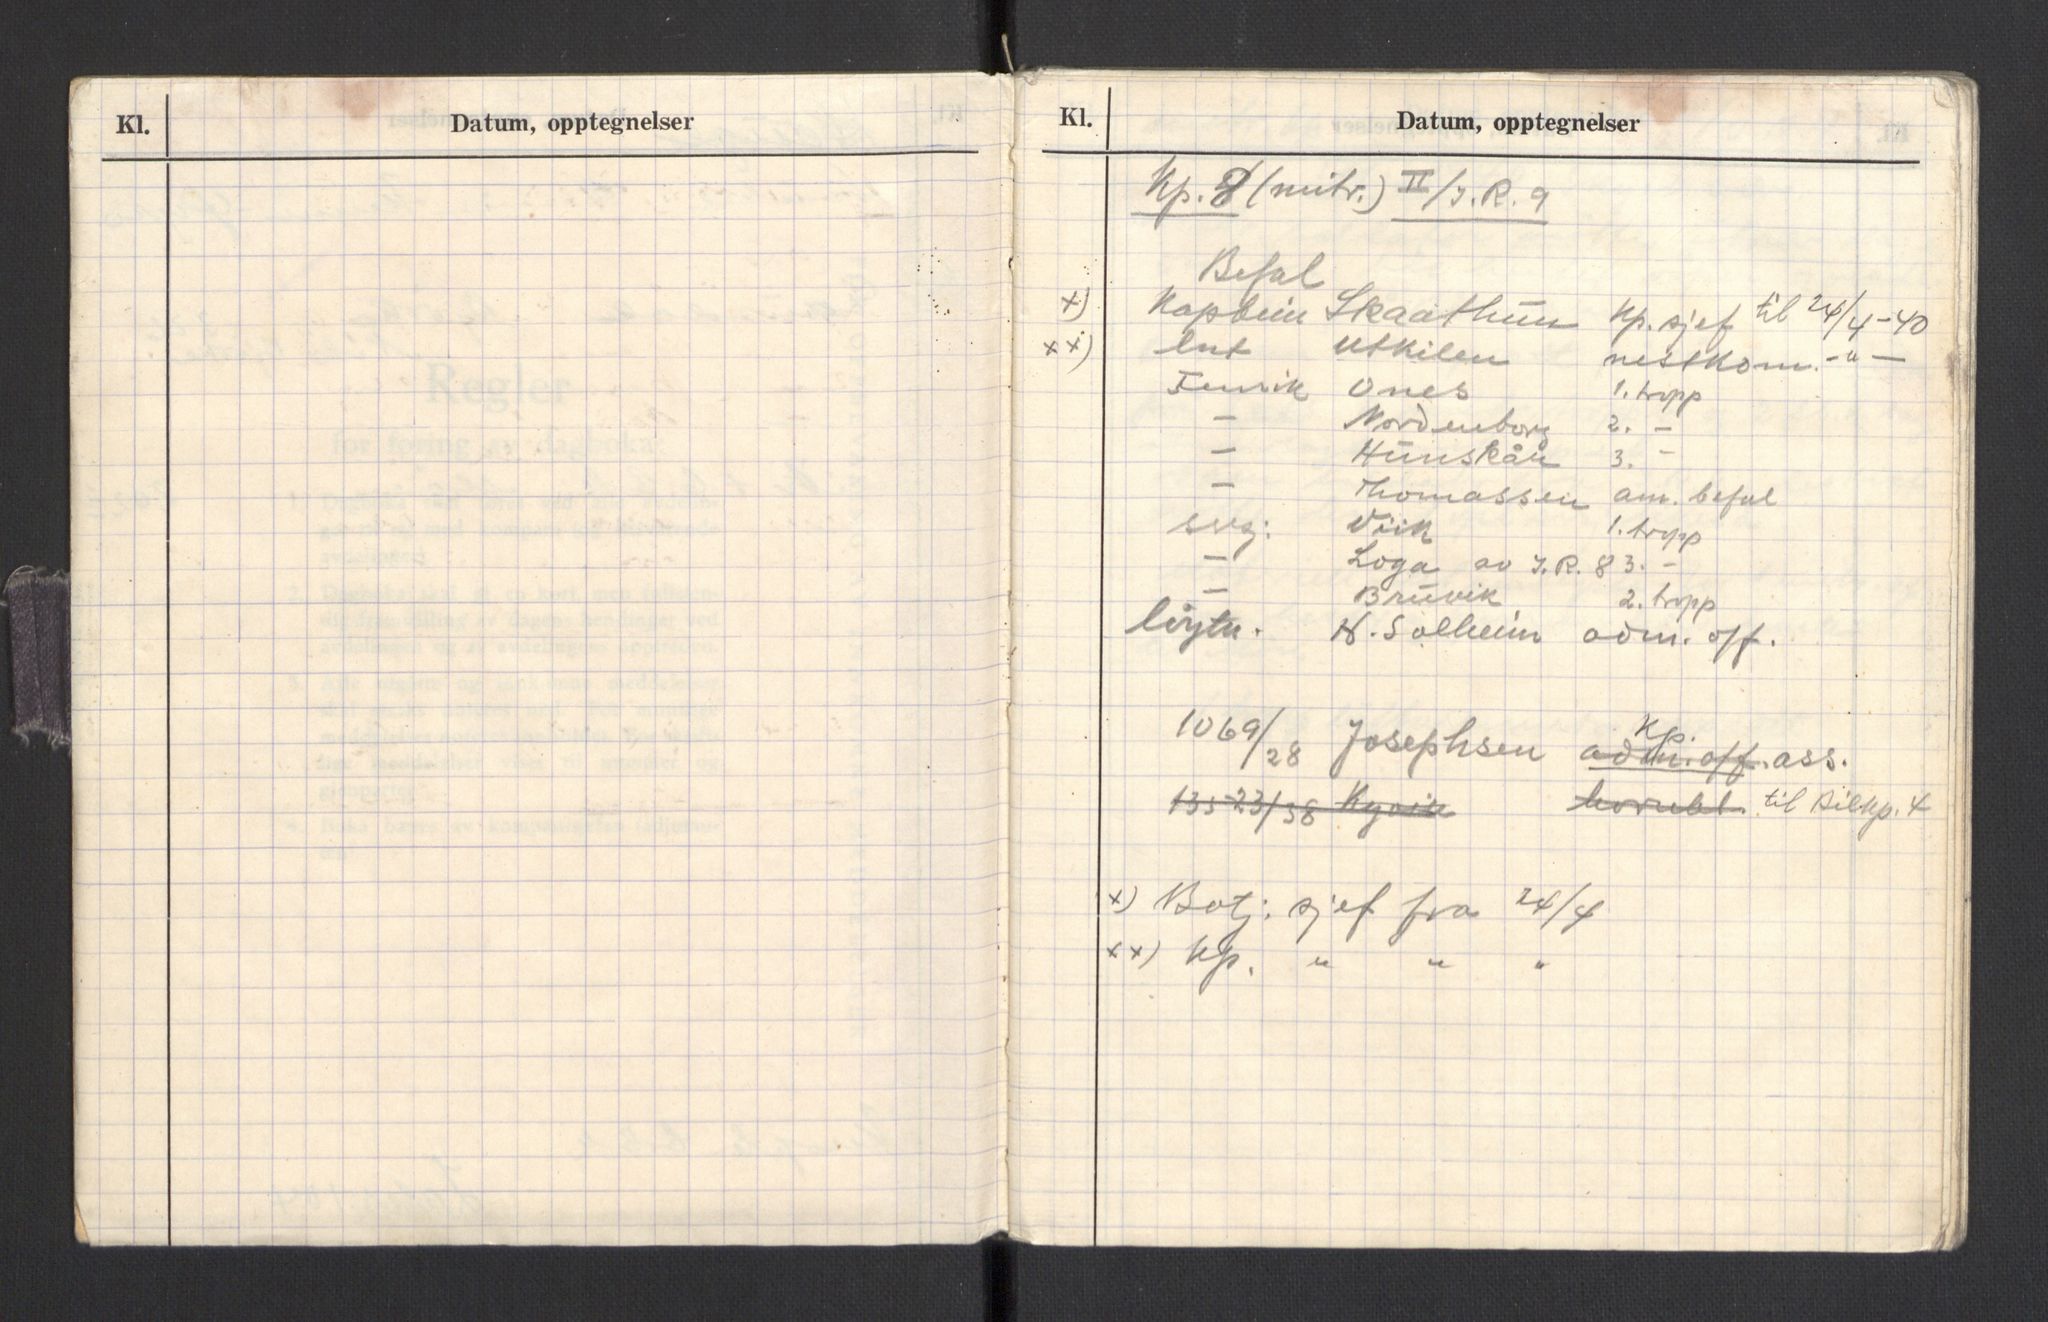 Kl. Datum, opptegnelser
Kl. Datum, opptegnelser
Kp. 8 (mitr.) II/I.R. 9
Befal
x) Kaptein Skaathun Kp. sjef til 24/4-40
xx) lnt Utkilen nestkom. -"-
Fenrik Ones 1. tropp
- Nordenborg 2. -
- Hunskår 3. -
- Thomassen am. befal
serg: Viik 1. tropp
- Loga av I.R. 8 3. -
- Bruvik 2. tropp
løytn. N. Solheim adm. off.
Kp.
1069/28 Josephsen adm. off. ass.
135-23/38 Kyvik til Bilkp. 4
x) Batj: sjef fra 24/4
xx) Kp. " " "